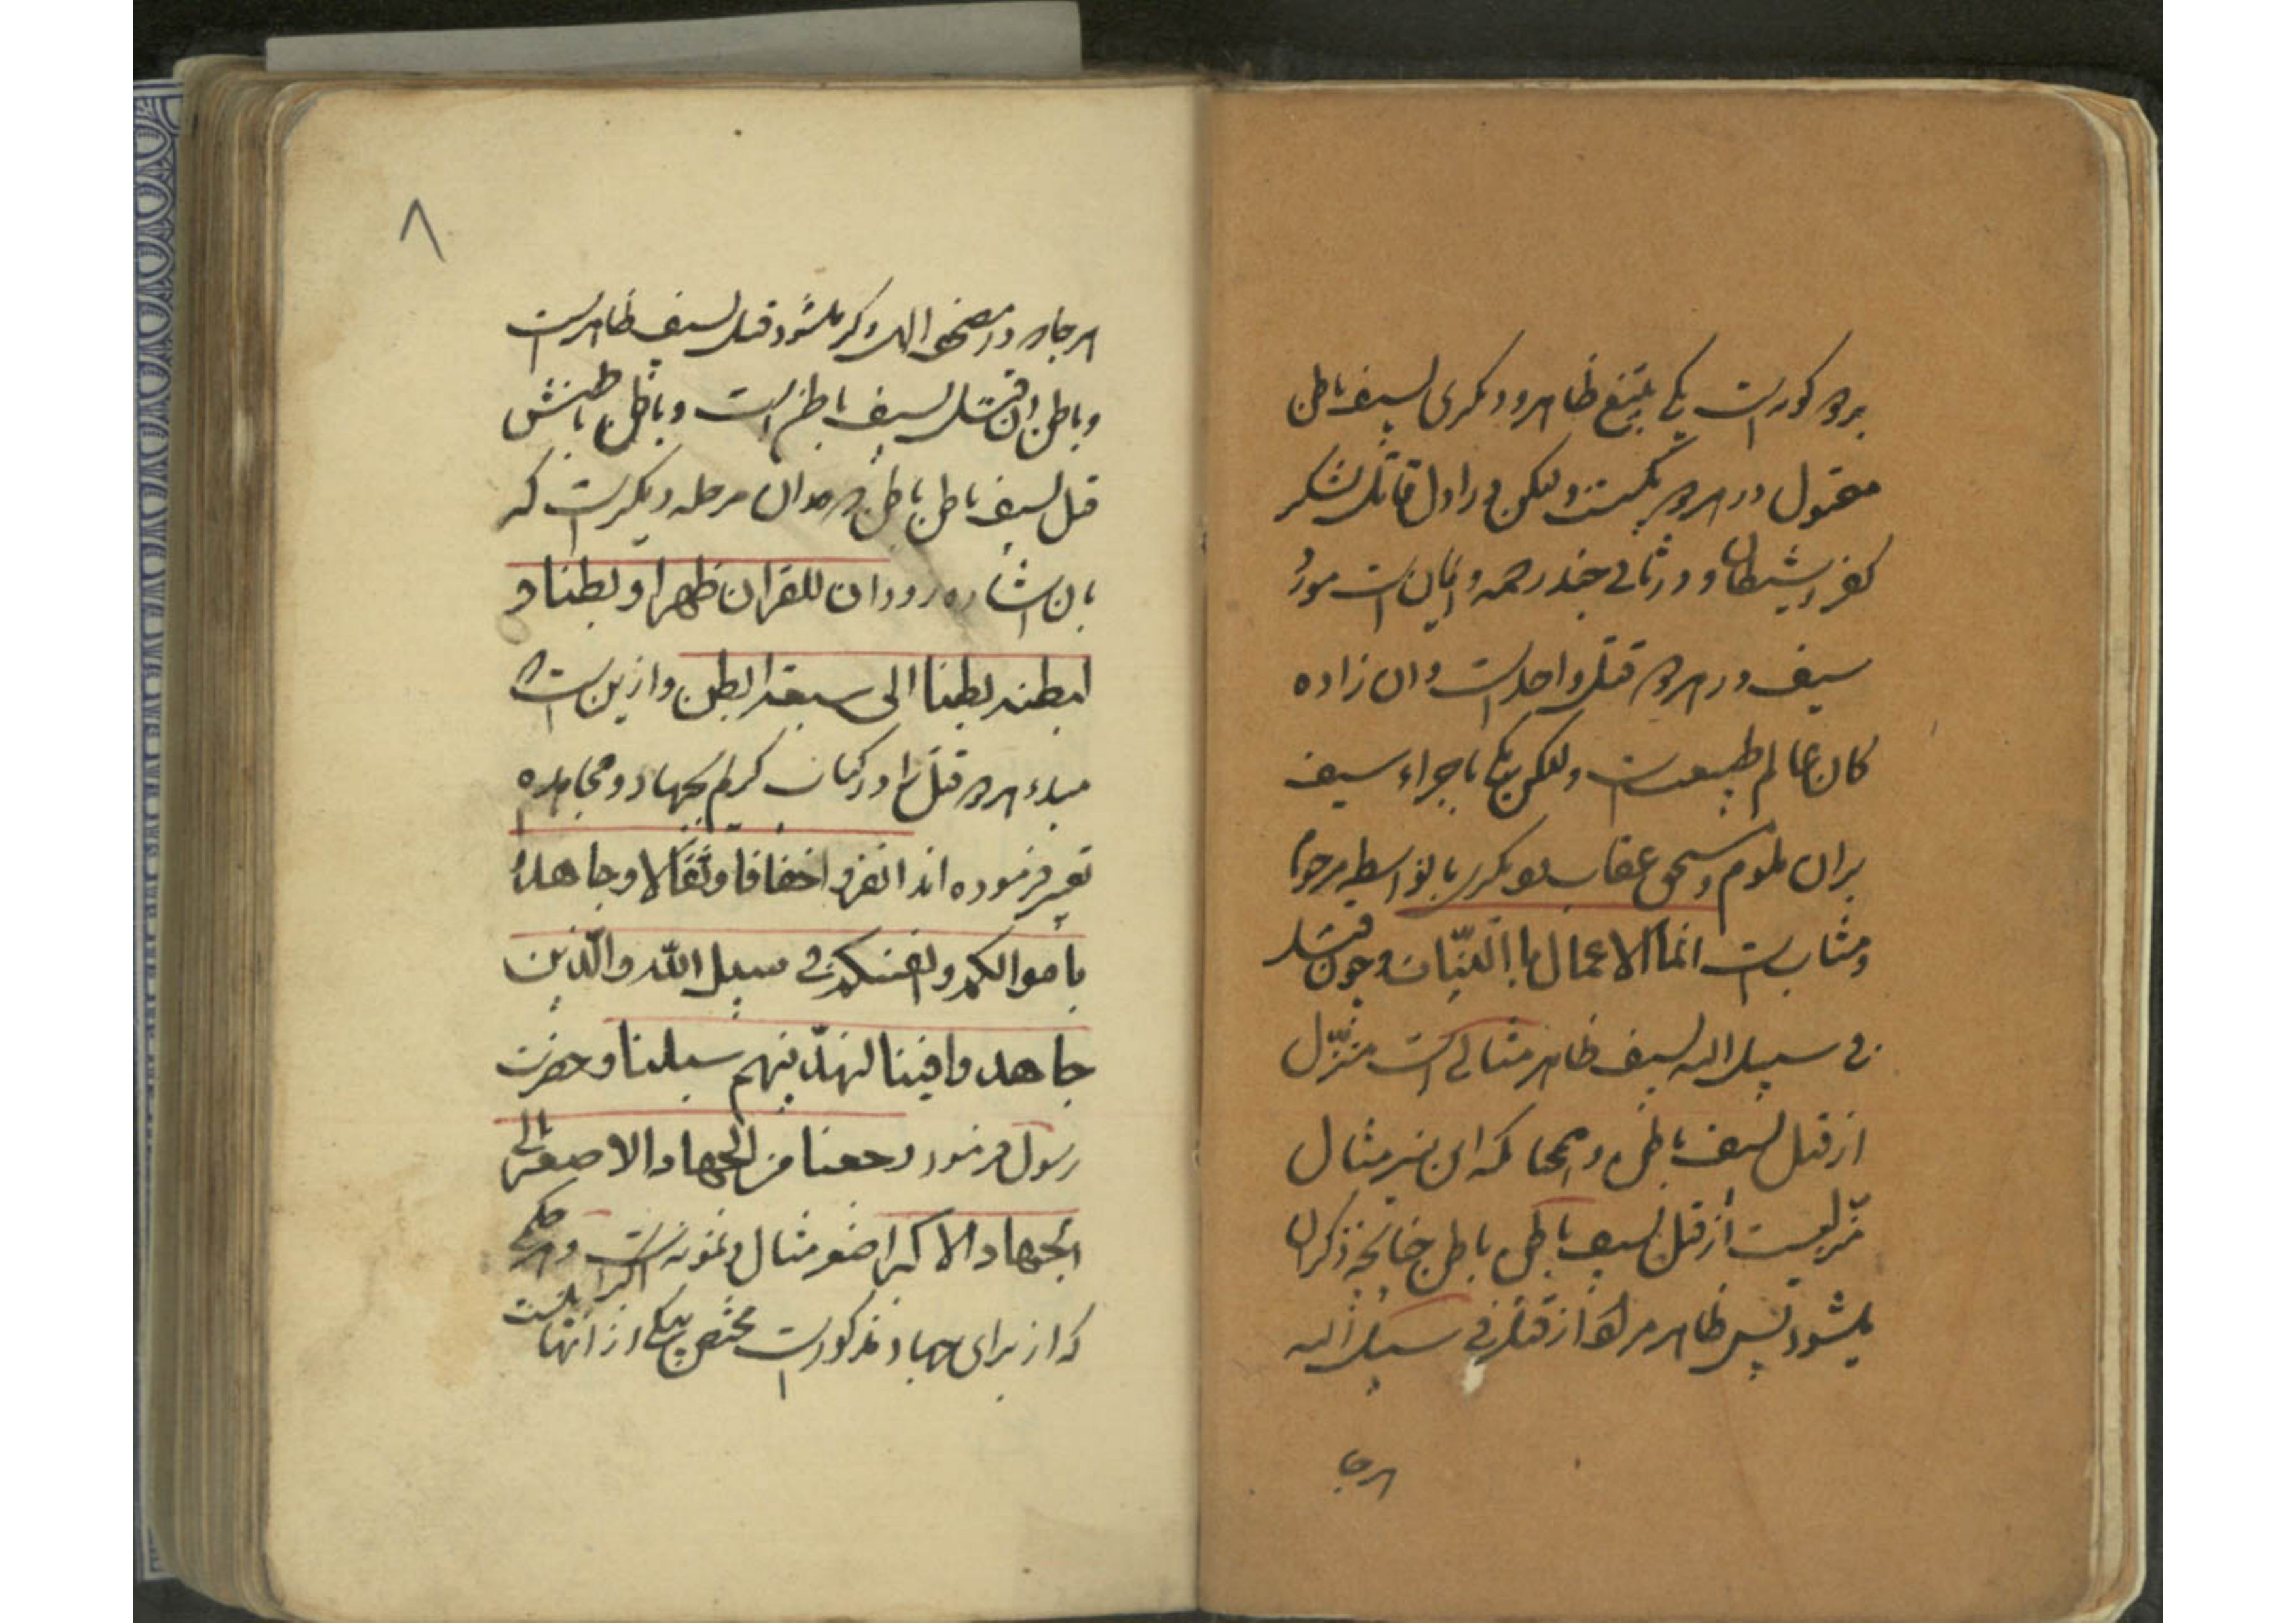 بر دو گونه است یکی بتیغ ظاهر و دیگری بسیف باطن
مقتول در هر دو یکیست ولیکن در اول قاتل لشکر
کفر و شیطان و در ثانی جند رحمه و ایمان است مورد
سیف در هر دو قتل واحد است و ان زاده
کان عالم طبیعت است ولکن یکی باجراء سیف
بران ملوم و مستحق عقاب و دیگری باین واسطه مرحوم
و مثاب است انما الاعمال باالنیّات و چون قتل
فی سبیل الله بسیف ظاهر مثالی است منزّل
از قتل بسیف باطن و همچنانکه این نیز مثال
منزلیست از قتل بسیف باطن باطن چنانچه ذکر ان
میشود پس ظاهر مراد از قتل فی سبیل الله
هر جا
۸
هر جا که در مصحف الهی ذکر میشود قتل بسیف ظاهر است
و باطن ان قتل بسیف باطن است و باطن باطنش
قتل بسیف باطن باطن و بعد ان مرحله دیگر است که
بان اشاره رود ان للقران ظهرا و بطنا و
لبطنه بطنا الی سبعة ابطن و ازین است که
مبدء هر دو قتل را در کتاب کریم بجهاد و مجاهده
تعبیر فرموده اند انفروا خفافا و ثقالا و جاهدوا
باموالکم و انفسکم فی سبیل الله والّذین
جاهدوا فینا لنهدّینهم سبلنا و حضرت
رسول فرمود رجعنا من الجهاد الاصغر الی
الجهاد الاکبر اصغر مثال و نمونه اکبر است و هر حکمی
که از برای جهاد مذکور است مختص بیکی از انها نیست